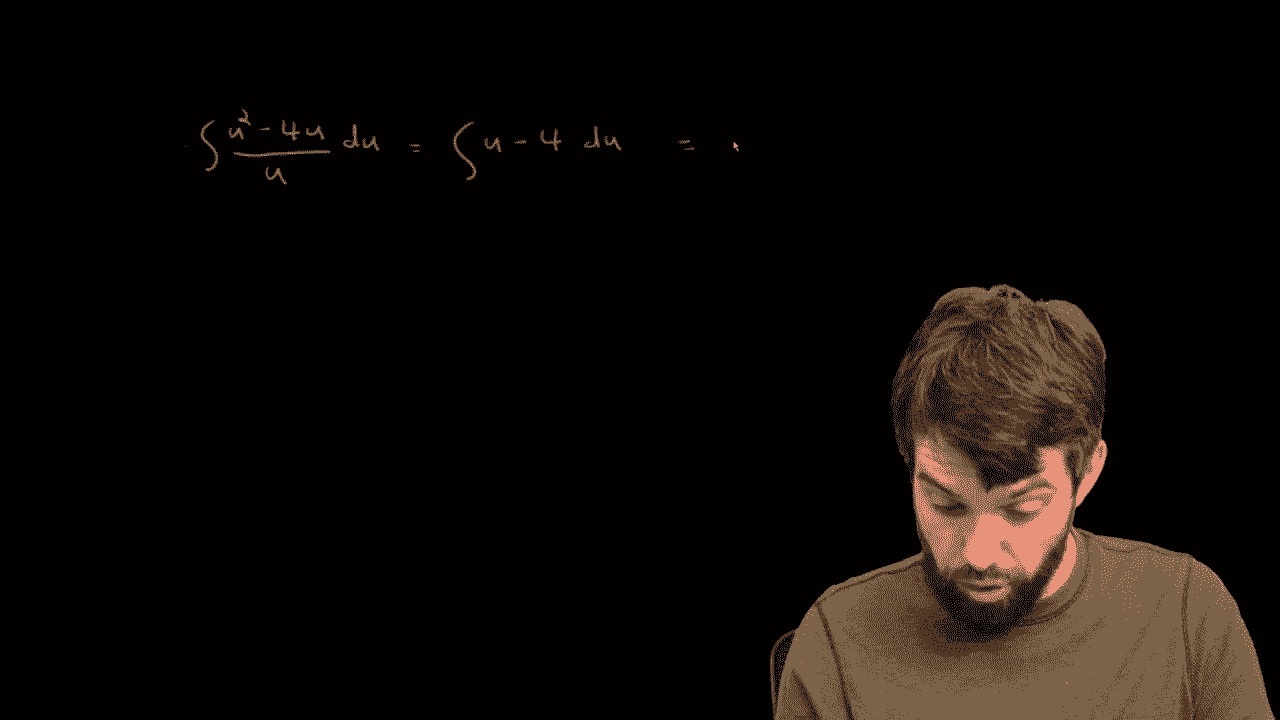 ∫ (u² - 4u)/u du = ∫ u - 4 du =